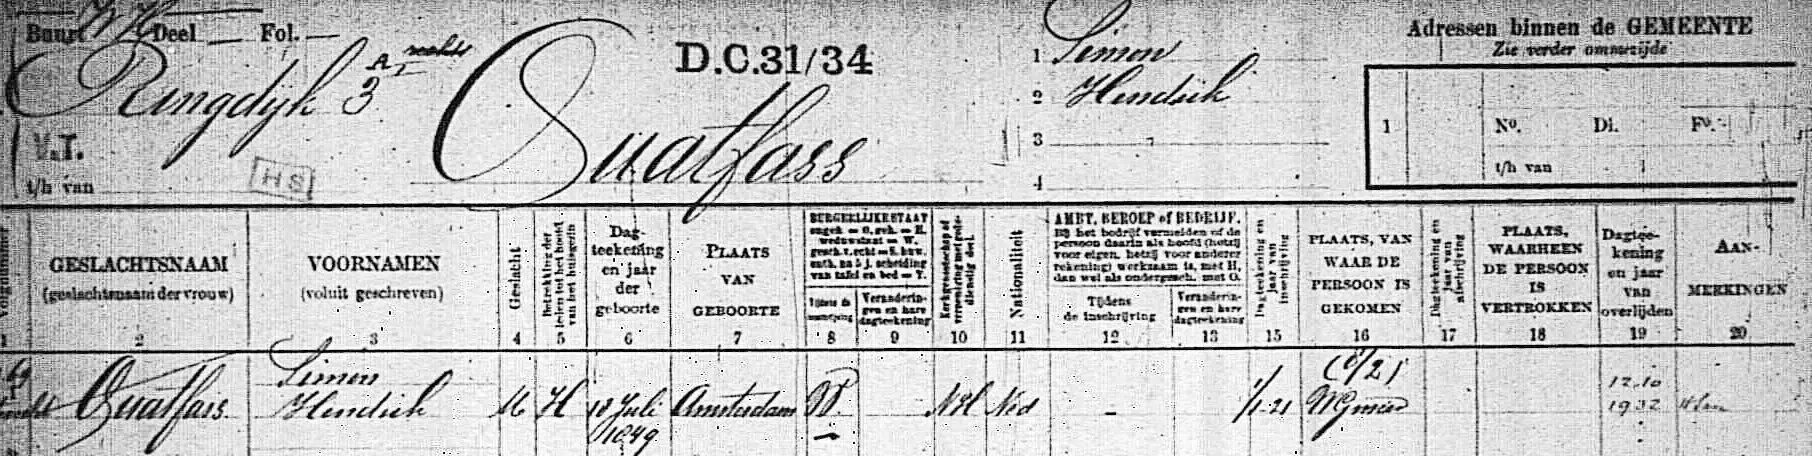 Buurt Deel Fol.
Ringdijk 3 A
V.T.
t/h van
HS
D.C.31/34
Quatfass
1 Simon
2 Hendrik
3
4
Adressen binnen de GEMEENTE
Zie verder ommezijde
1 No. Dl. Fo.
t/h van
Volgnummer
GESLACHTSNAAM
(geslachtsnaam der vrouw)
VOORNAMEN
(voluit geschreven)
Geslacht
Betrekking der
leden tot het hoofd
van het huisgezin
Dag-
teekening
en jaar
der
geboorte
PLAATS
VAN
GEBOORTE
BURGERLIJKE STAAT
ongeh. = O, geh. = H.
weduwstaat = W.
gesch. v. echt = S. huw.
onth. na 5 j. scheiding
van tafel en bed = T.
Tijdens de
inschrijving
Veranderin-
gen en hare
dagteekening
Kerkgenootschap of
vereeniging met gods-
dienstig doel.
Nationaliteit
AMBT, BEROEP of BEDRIJF.
Bij het bedrijf vermelden of de
persoon daarin als hoofd (hetzij
voor eigen, hetzij voor anderer
rekening) werkzaam is, met H,
dan wel als ondergesch. met O.
Tijdens
de inschrijving
Veranderin-
gen en hare
dagteekening
Dagteekening en
jaar van
inschrijving
PLAATS, VAN
WAAR DE
PERSOON IS
GEKOMEN
Dagteekening en
jaar van
afschrijving
PLAATS,
WAARHEEN
DE PERSOON
IS
VERTROKKEN
Dagtee-
kening
en jaar
van
overlijden
AAN-
MERKINGEN
1 2 3 4 5 6 7 8 9 10 11 12 13 15 16 17 18 19 20
Quatfass
Simon
Hendrik
M H 18 Juli
1849
Amsterdam W. NH Ned - 1/1-21
(1/21)
WGmeer
12.10
1932